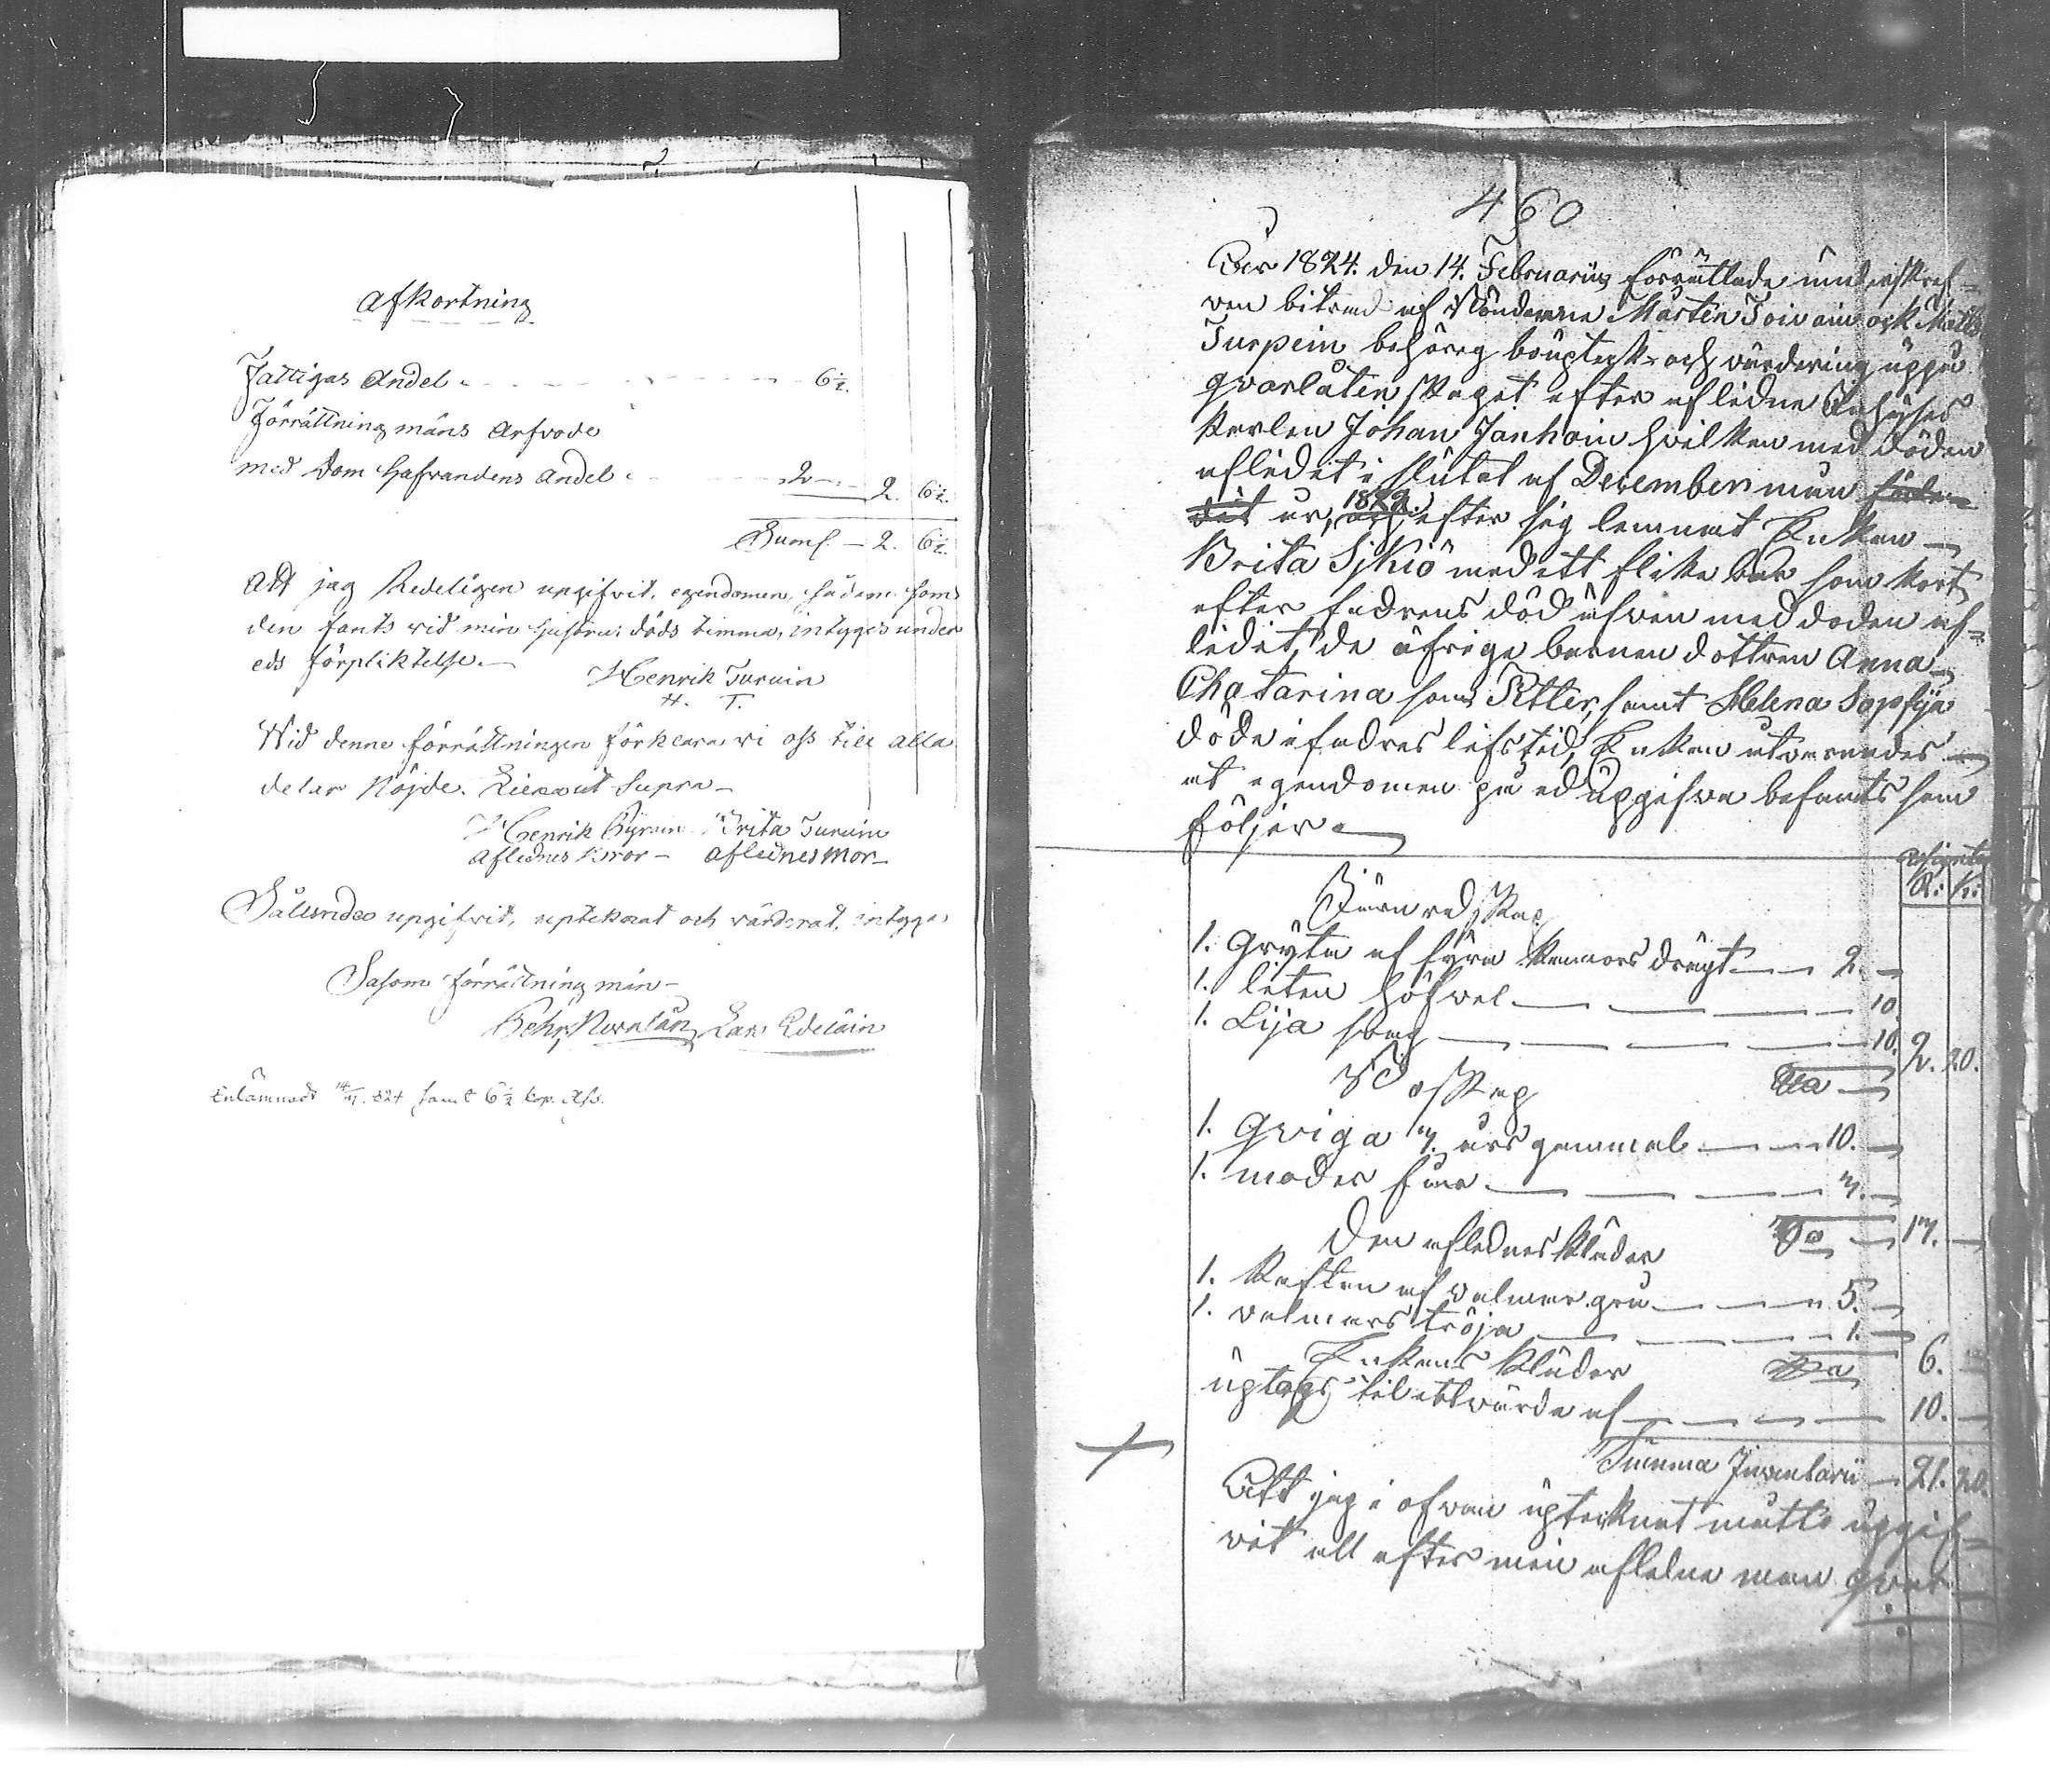 Afkortning
Fattigas Andel - - - 6½.
Förrättning mäns Arfvode
med Dom hafvandens Andel - 2 - 2. 6½.
Sum. - 2. 6½.
Att jag Redeligen upgifvit egendomen, sådan som
den fants vid min hustrus döds timma, intygas under
eds förpliktelse.
Henrik Turuin
H. T.
Wid denne förrättningen förklara vi oss till alla
delar Nöjde. ut Supra -
Henrik Brita Turuin
Aflednes Bror - Aflednes Mor -
Sålundes upgifvit, upteknat och värderat, intyga
Såsom förrättning män -
Lars Edeläin
Inlämnadt 14/7. 824 samt 6½ kop.
460
År 1824. den 14. Februarius förrättade underskref=
ven biträd af Nämdemän Mårten Toivain ock Matts
Turpein behöreg boupteck- och värdering uppå
qvarlåtenskapet efter aflidne Inhyses
karlen Johan Janhoin hvilken med döden
aflidet i slutet af December mån
år, 1822. efter sig lemnat Enkan
Brita Sikiö med ett flike barn som kort
efter fadrens död äfven med döden af=
lidet, de öfrige barnen dottren Anna
Chatarina son Petter, samt Helena Sopfija
döde i fadres lifstid, Enkan utvarandes
at egendomen på ed upgifva befants som
följer
Assignater
R: K:
Järnredskap
1. Gryta af fyra kannors drägt - 2. -
1. liten höfvel - - - 10.
1. Lija song - - - 10. 2. 20.
Boskap
1. Qviga 7. års gammal - 10. -
1. moder får - - - 7. -
17. -
Den aflednes kläder
1. Kaftan af valmar grå - - 5. -
1. valmars tröja - - - 1. -
6. -
Enkans kläder
uptags til ett värde af - - - 10. -
Summa Inventarii - 21. 20.
Att jag i ofvan uptecknat måtto uppgif=
vit all efter min afledne man qvar